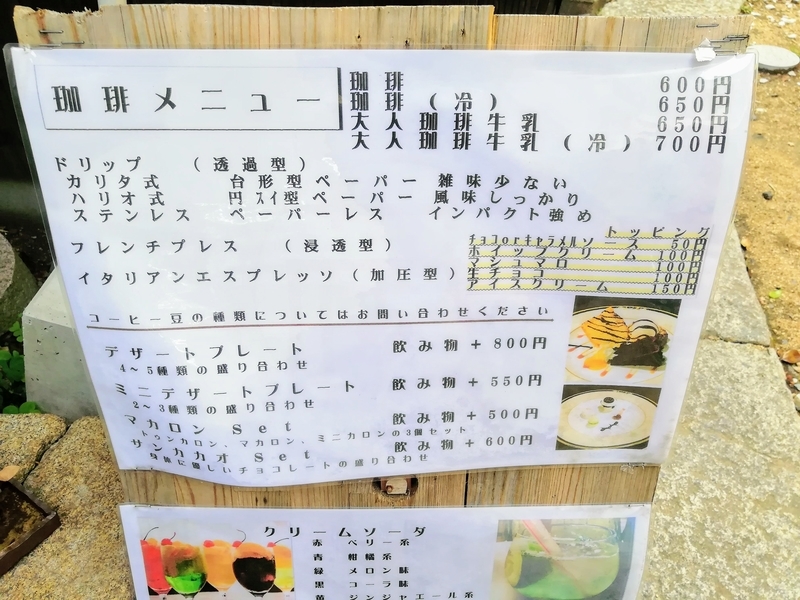 珈琲メニュー
珈琲 600円
珈琲（冷） 650円
大人珈琲牛乳 650円
大人珈琲牛乳（冷） 700円
ドリップ （透過型）
カリタ式 台形型ペーパー 雑味少ない
ハリオ式 円スイ型ペーパー 風味しっかり
ステンレス ペーパーレス インパクト強め
フレンチプレス （浸透型）
イタリアンエスプレッソ（加圧型）
トッピング
チョコorキャラメルソース 50円
ホイップクリーム 100円
マシュマロ 100円
生チョコ 100円
アイスクリーム 150円
コーヒー豆の種類についてはお問い合わせください
デザートプレート 飲み物＋800円
4～5種類の盛り合わせ
ミニデザートプレート 飲み物＋550円
2～3種類の盛り合わせ
マカロン Set 飲み物＋500円
トゥンカロン、マカロン、ミニカロンの3個セット
サンカカオ Set 飲み物＋600円
身体に優しいチョコレートの盛り合わせ
クリームソーダ
赤 ベリー系
青 柑橘系
緑 メロン味
黒 コーラ味
黄 ジンジャエール系